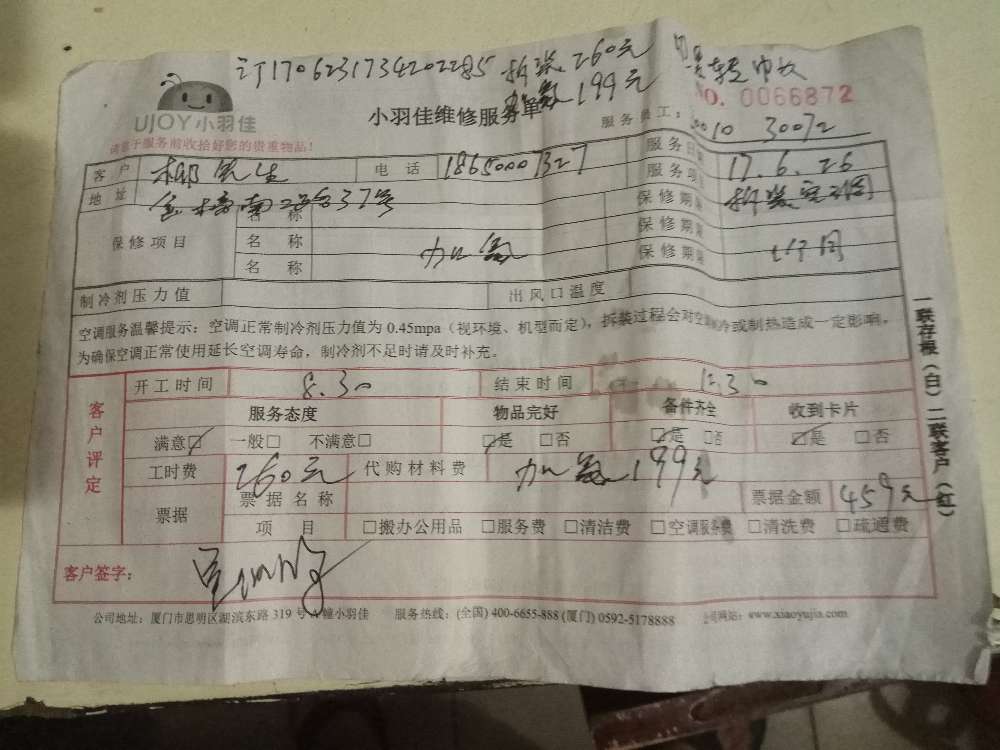 订1706231734202285 拆装 260元
加氟 199元
UJOY小羽佳
小羽佳维修服务单
NO. 0066872
服务员工： 30010 30072
请您于服务前收拾好您的贵重物品!
客户 柳先生 电话 18650001327 服务日期 17.6.26
地址 服务项目 拆装空调
保修项目 名称 保修期限
名称 加氟 保修期限
名称 保修期限
制冷剂压力值 出风口温度
空调服务温馨提示：空调正常制冷剂压力值为 0.45mpa（视环境、机型而定），拆装过程会对空调制冷或制热造成一定影响。
为确保空调正常使用延长空调寿命，制冷剂不足时请及时补充。
客户评定
开工时间 8.30 结束时间
服务态度 物品完好 备件齐全 收到卡片
满意☑ 一般□ 不满意□ ☑是 □否 ☑是 □否 ☑是 □否
工时费 260元 代购材料费 加氟 199元
票据 票据名称 票据金额 459元
项目 □搬办公用品 □服务费 □清洁费 □空调服务费 □清洗费 □疏通费
客户签字：
公司地址：厦门市思明区湖滨东路 319 号 A 幢小羽佳 服务热线：(全国) 400-6655-888 (厦门) 0592-5178888 公司网站：www.xiaoyujia.com
一联存根（白）二联客户（红）